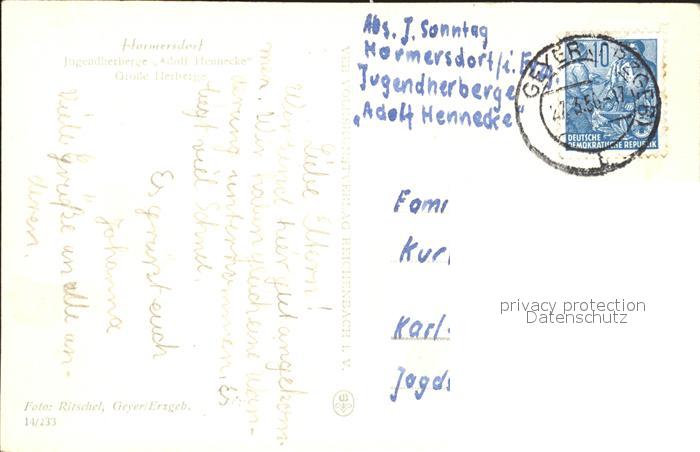 Hormersdorf
Jugendherberge „Adolf Hennecke"
Große Herberge
Liebe Eltern!
Wir sind hier gut angekom-
men. Wir haben gleich eine Wan-
derung unternommen. Es
liegt viel Schnee.
Es grüsst euch
Johanna
Viele Grüße an alle an-
deren.
Foto: Ritschel, Geyer/Erzgeb.
14/233
REICHENBACH I. V.
Abs. J. Sonntag
Hormersdorf/i. Erz
Jugendherberge
„Adolf Hennecke"
GEYER (ERZGEB)
10
DEUTSCHE
DEMOKRATISCHE REPUBLIK
Fami
Kur
Karl-
Jagds
privacy protection
Datenschutz